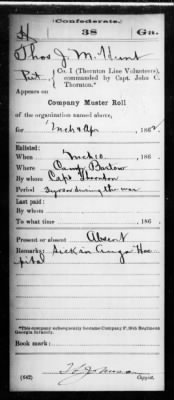 Confederate.
H 38 Ga.
Thos J. M. Hunt
Pvt., Co. I (Thornton Line Volunteers),
commanded by Capt. John C.
Thornton.*
Appears on
Company Muster Roll
of the organization named above,
for Mch & Apr, 1862
Enlisted:
When Mch 10, 186 .
Where Camp Bartow
By whom Capt Thornton
Period 3 yrs or during the war
Last paid:
By whom
To what time , 186 .
Present or absent Absent
Remarks: Sick in Augo Hos
pital
*This company subsequently became Company F, 38th Regiment
Georgia Infantry.
Book mark:
(642) Copyist.